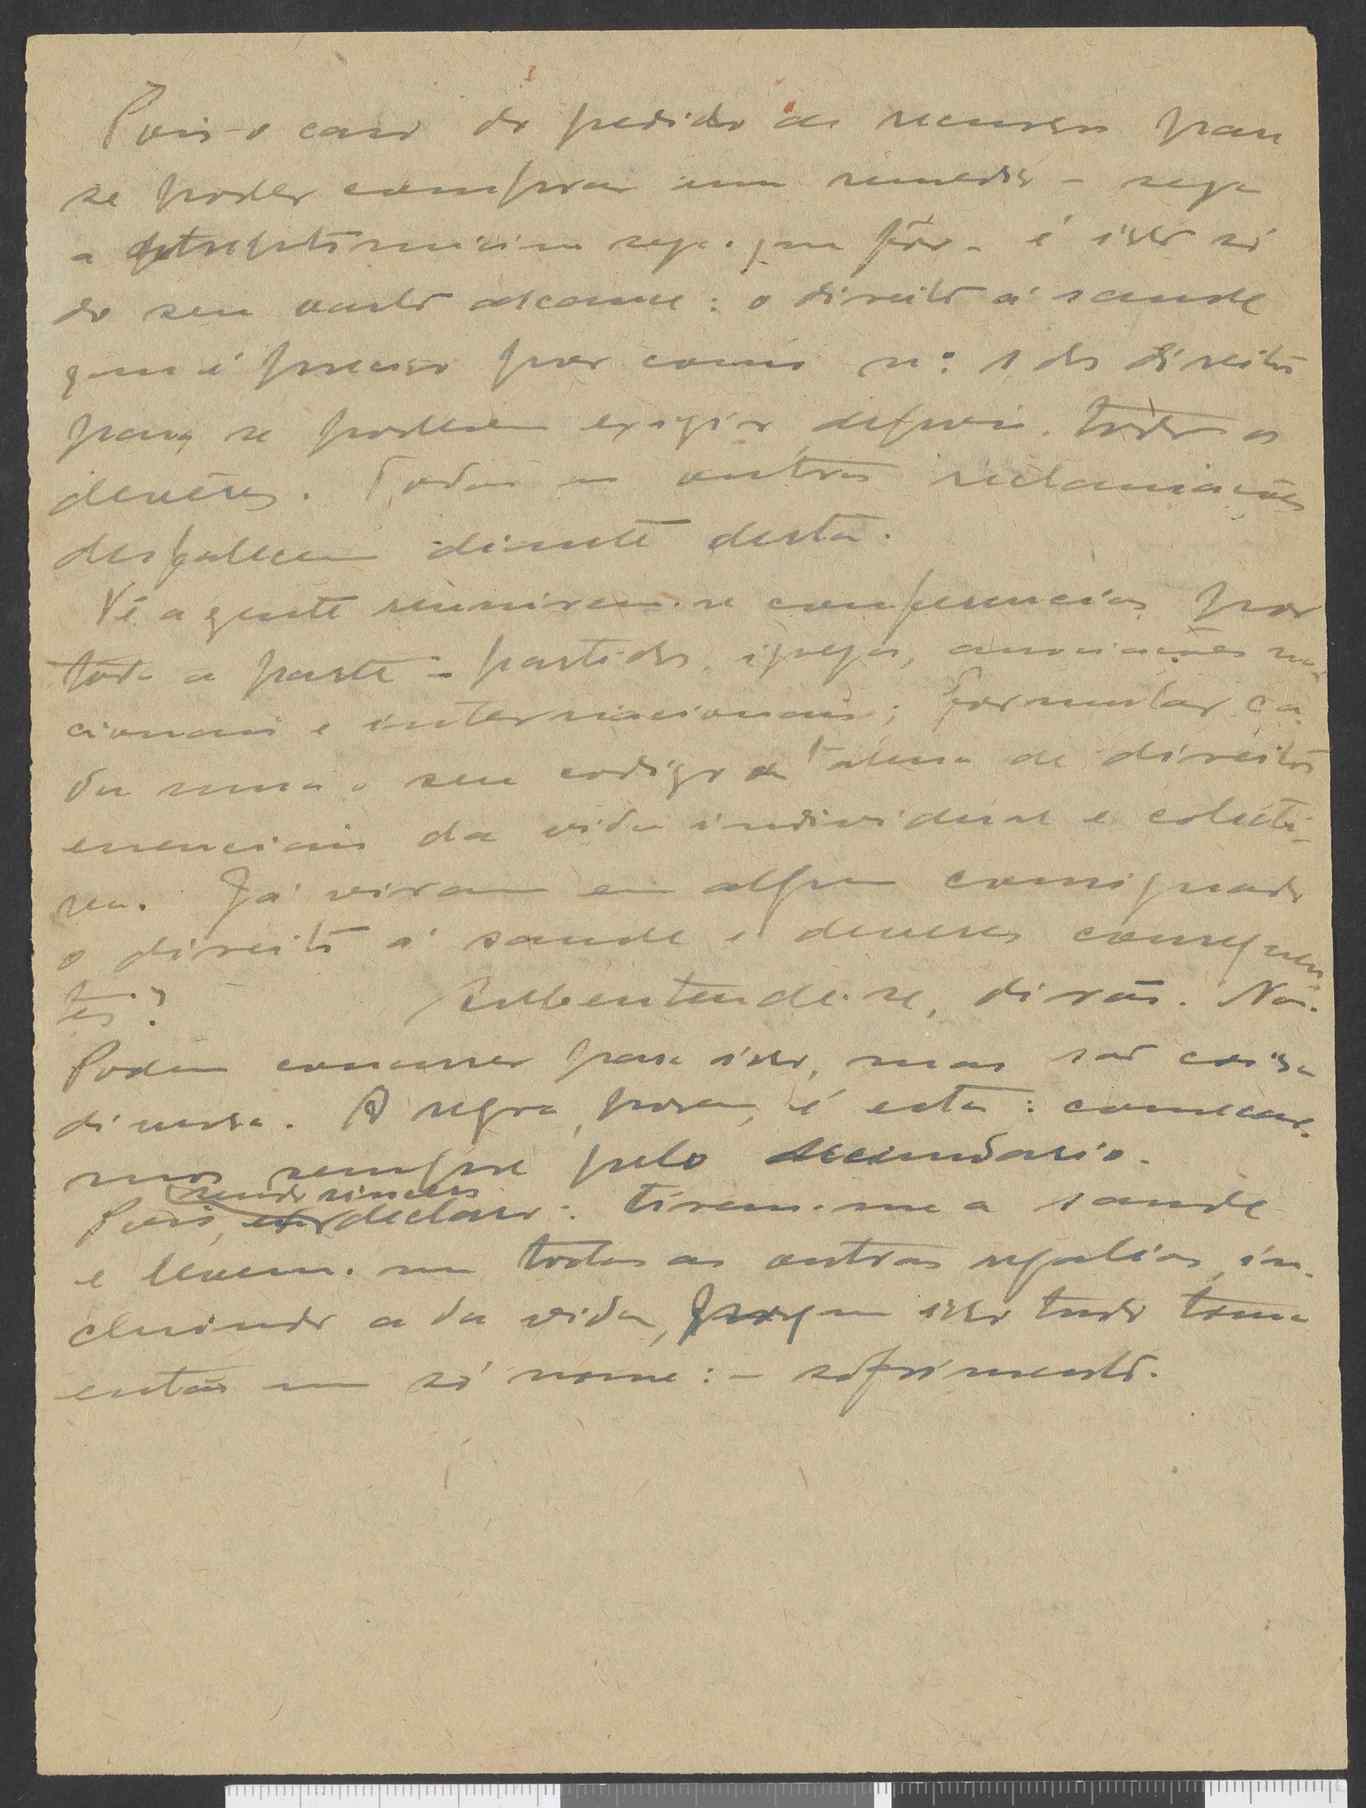 Pois o caso do pedido de recursos para
se poder comprar um remedio – seja
a estreptomicina seja o que fôr – é isto só
do seu vasto alcance: o direito á saude
que é preciso por como n.º 1 dos direitos
para se poderem exigir depois todos os
deveres. Todas as outras reclamações
desfalecem diante desta.
Vê a gente reunirem-se conferencias por
toda a parte – partidos, igrejas, associações na-
cionais e internacionais; formular ca-
da uma o seu codigo ou tabua de direitos
essenciais da vida individual e colecti-
va. Já viram em algum consignado
o direito á saude e deveres consequen-
tes? Subentende-se, dirão. Não.
Podem concorrer para isso, mas são coisa
diversa. A regra, porem, é esta: começar-
mos sempre pelo secundario.
sendo sincero
Pois, declaro: tirem-me a saude
e levem-me todas as outras regalias, in-
cluindo a da vida, porque isso tudo toma
então um só nome: – sofrimento.